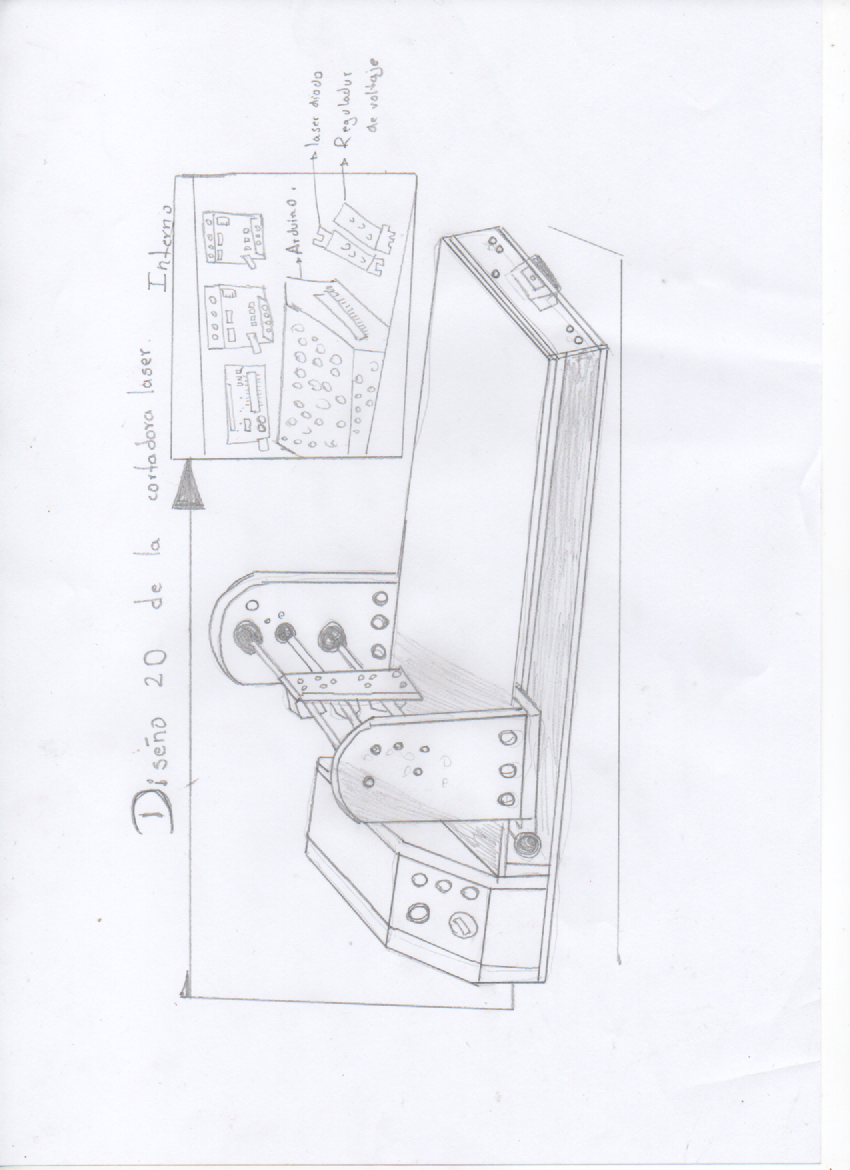 Diseño 2D de la cortadora laser.
Interno
UNO
Arduino.
laser diodo
Regulador
de voltaje